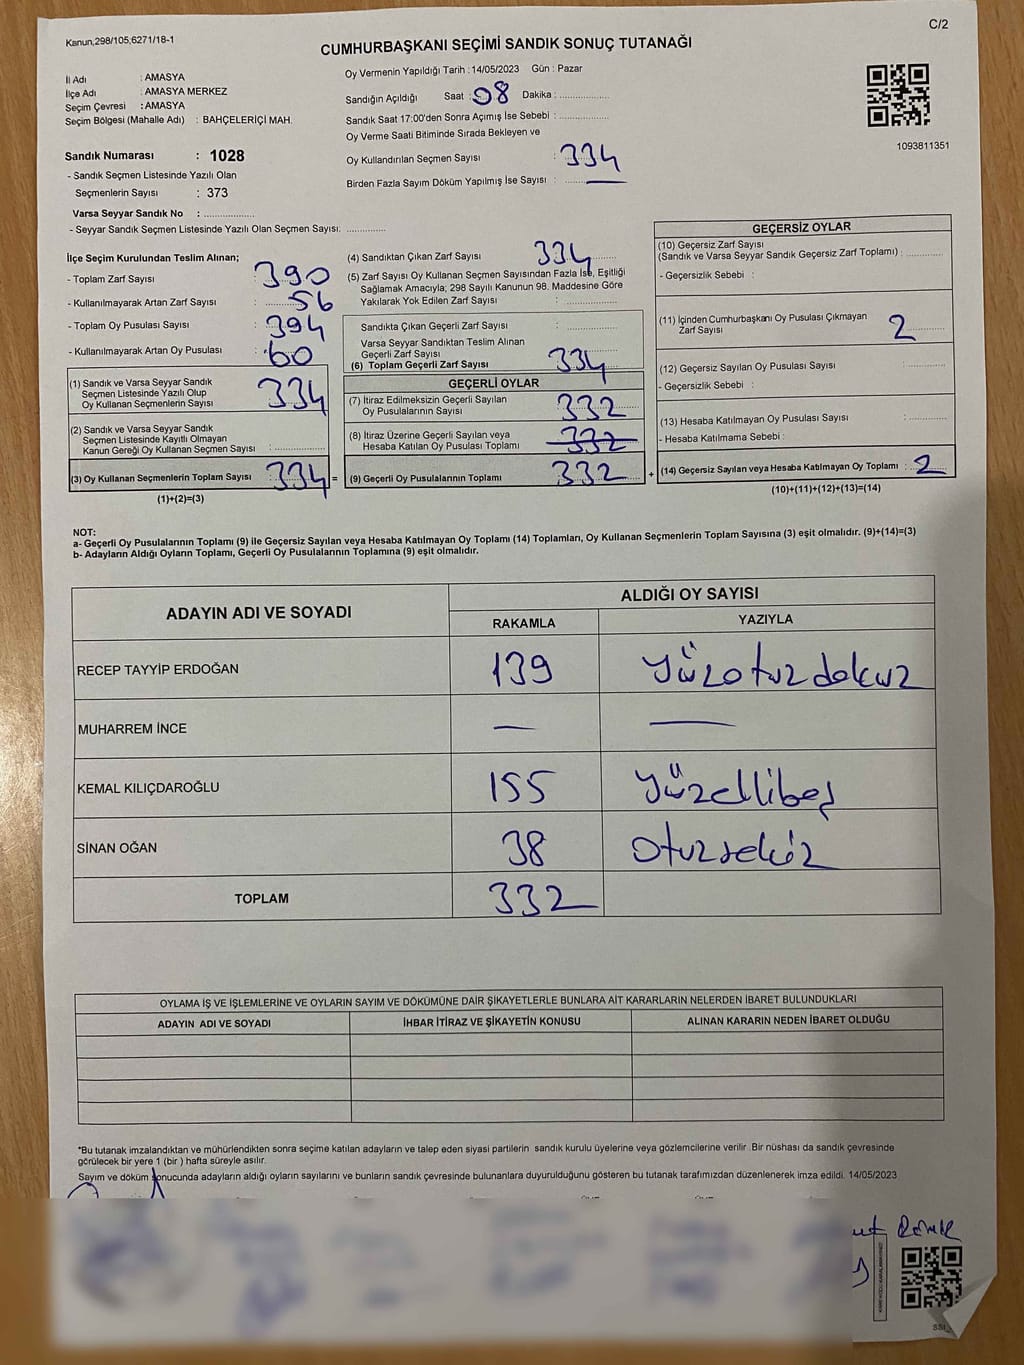 Kanun,298/105,6271/18-1
C/2
CUMHURBAŞKANI SEÇİMİ SANDIK SONUÇ TUTANAĞI
İl Adı : AMASYA
İlçe Adı : AMASYA MERKEZ
Seçim Çevresi : AMASYA
Seçim Bölgesi (Mahalle Adı) : BAHÇELERİÇİ MAH.
Sandık Numarası : 1028
- Sandık Seçmen Listesinde Yazılı Olan
Seçmenlerin Sayısı : 373
Varsa Seyyar Sandık No : ..................
- Seyyar Sandık Seçmen Listesinde Yazılı Olan Seçmen Sayısı: ..............
Oy Vermenin Yapıldığı Tarih : 14/05/2023 Gün : Pazar
Sandığın Açıldığı Saat : 08 Dakika : ..................
Sandık Saat 17:00'den Sonra Açımış İse Sebebi : ..................
Oy Verme Saati Bitiminde Sırada Bekleyen ve
Oy Kullandırılan Seçmen Sayısı : 334
Birden Fazla Sayım Döküm Yapılmış İse Sayısı : —
1093811351
İlçe Seçim Kurulundan Teslim Alınan;
- Toplam Zarf Sayısı : 390
- Kullanılmayarak Artan Zarf Sayısı : 56
- Toplam Oy Pusulası Sayısı : 394
- Kullanılmayarak Artan Oy Pusulası : 60
(1) Sandık ve Varsa Seyyar Sandık
Seçmen Listesinde Yazılı Olup
Oy Kullanan Seçmenlerin Sayısı : 334
(2) Sandık ve Varsa Seyyar Sandık
Seçmen Listesinde Kayıtlı Olmayan
Kanun Gereği Oy Kullanan Seçmen Sayısı : ..............
(3) Oy Kullanan Seçmenlerin Toplam Sayısı : 334 =
(1)+(2)=(3)
(4) Sandıktan Çıkan Zarf Sayısı : 334
(5) Zarf Sayısı Oy Kullanan Seçmen Sayısından Fazla İse, Eşitliği
Sağlamak Amacıyla; 298 Sayılı Kanunun 98. Maddesine Göre
Yakılarak Yok Edilen Zarf Sayısı : ..............
Sandıkta Çıkan Geçerli Zarf Sayısı : ..............
Varsa Seyyar Sandıktan Teslim Alınan
Geçerli Zarf Sayısı
(6) Toplam Geçerli Zarf Sayısı : 334
GEÇERLİ OYLAR
(7) İtiraz Edilmeksizin Geçerli Sayılan
Oy Pusulalarının Sayısı : 332
(8) İtiraz Üzerine Geçerli Sayılan veya
Hesaba Katılan Oy Pusulası Toplamı : 332
(9) Geçerli Oy Pusulalarının Toplamı : 332 +
GEÇERSİZ OYLAR
(10) Geçersiz Zarf Sayısı
(Sandık ve Varsa Seyyar Sandık Geçersiz Zarf Toplamı) : ..............
- Geçersizlik Sebebi :
(11) İçinden Cumhurbaşkanı Oy Pusulası Çıkmayan
Zarf Sayısı : 2
(12) Geçersiz Sayılan Oy Pusulası Sayısı : ..............
- Geçersizlik Sebebi :
(13) Hesaba Katılmayan Oy Pusulası Sayısı : ..............
- Hesaba Katılmama Sebebi :
(14) Geçersiz Sayılan veya Hesaba Katılmayan Oy Toplamı : 2
(10)+(11)+(12)+(13)=(14)
NOT:
a- Geçerli Oy Pusulalarının Toplamı (9) ile Geçersiz Sayılan veya Hesaba Katılmayan Oy Toplamı (14) Toplamları, Oy Kullanan Seçmenlerin Toplam Sayısına (3) eşit olmalıdır. (9)+(14)=(3)
b- Adayların Aldığı Oyların Toplamı, Geçerli Oy Pusulalarının Toplamına (9) eşit olmalıdır.
ADAYIN ADI VE SOYADI
ALDIĞI OY SAYISI
RAKAMLA YAZIYLA
RECEP TAYYİP ERDOĞAN 139 Yüzotuzdokuz
MUHARREM İNCE — —
KEMAL KILIÇDAROĞLU 155 Yüzellibeş
SİNAN OĞAN 38 Otuzsekiz
TOPLAM 332
OYLAMA İŞ VE İŞLEMLERİNE VE OYLARIN SAYIM VE DÖKÜMÜNE DAİR ŞİKAYETLERLE BUNLARA AİT KARARLARIN NELERDEN İBARET BULUNDUKLARI
ADAYIN ADI VE SOYADI İHBAR İTİRAZ VE ŞİKAYETİN KONUSU ALINAN KARARIN NEDEN İBARET OLDUĞU
*Bu tutanak imzalandıktan ve mühürlendikten sonra seçime katılan adayların ve talep eden siyasi partilerin sandık kurulu üyelerine veya gözlemcilerine verilir. Bir nüshası da sandık çevresinde
görülecek bir yere 1 (bir ) hafta süreyle asılır.
Sayım ve döküm sonucunda adayların aldığı oyların sayılarını ve bunların sandık çevresinde bulunanlara duyurulduğunu gösteren bu tutanak tarafımızdan düzenlenerek imza edildi. 14/05/2023